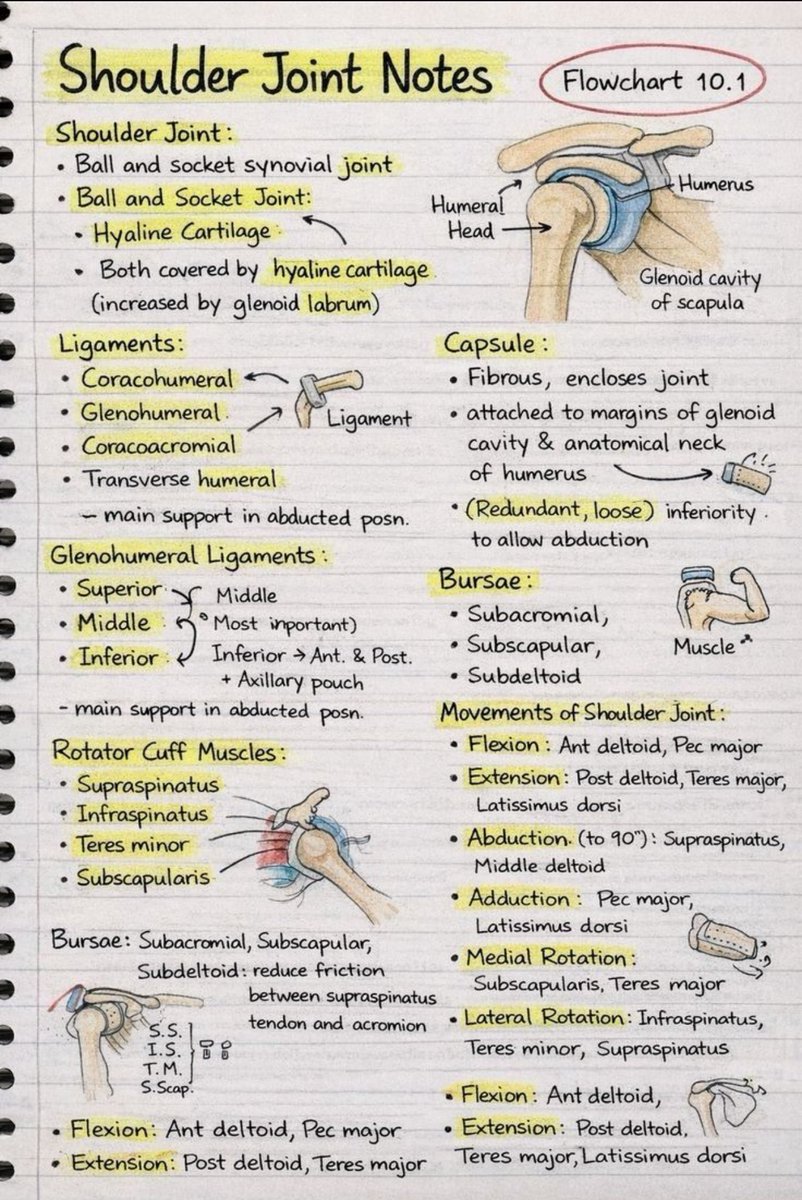 Shoulder Joint Notes
Flowchart 10.1
Shoulder Joint:
• Ball and socket synovial joint
• Ball and Socket Joint:
• Hyaline Cartilage
• Both covered by hyaline cartilage
(increased by glenoid labrum)
Humeral
Head
Humerus
Glenoid cavity
of scapula
Ligaments:
• Coracohumeral
• Glenohumeral.
• Coracoacromial
• Transverse humeral
– main support in abducted posn.
Ligament
Glenohumeral Ligaments:
• Superior
• Middle
• Inferior
Middle
Most inportant)
Inferior → Ant. & Post.
+ Axillary pouch
- main support in abducted posn.
Rotator Cuff Muscles:
• Supraspinatus
• Infraspinatus
• Teres minor
• Subscapularis
Bursae: Subacromial, Subscapular,
Subdeltoid: reduce friction
between supraspinatus
tendon and acromion
S.S.
I.S.
T.M.
S.Scap.
• Flexion: Ant deltoid, Pec major
• Extension: Post deltoid, Teres major
Capsule:
• Fibrous, encloses joint
• attached to margins of glenoid
cavity & anatomical neck
of humerus
• (Redundant, loose) inferiority.
to allow abduction
Bursae:
• Subacromial,
• Subscapular,
• Subdeltoid
Muscle
Movements of Shoulder Joint:
• Flexion: Ant deltoid, Pec major
• Extension: Post deltoid, Teres major,
Latissimus dorsi
• Abduction. (to 90°): Supraspinatus,
Middle deltoid
• Adduction: Pec major,
Latissimus dorsi
• Medial Rotation:
Subscapularis, Teres major
• Lateral Rotation: Infraspinatus,
Teres minor, Supraspinatus
• Flexion: Ant deltoid,
• Extension: Post deltoid,
Teres major, Latissimus dorsi